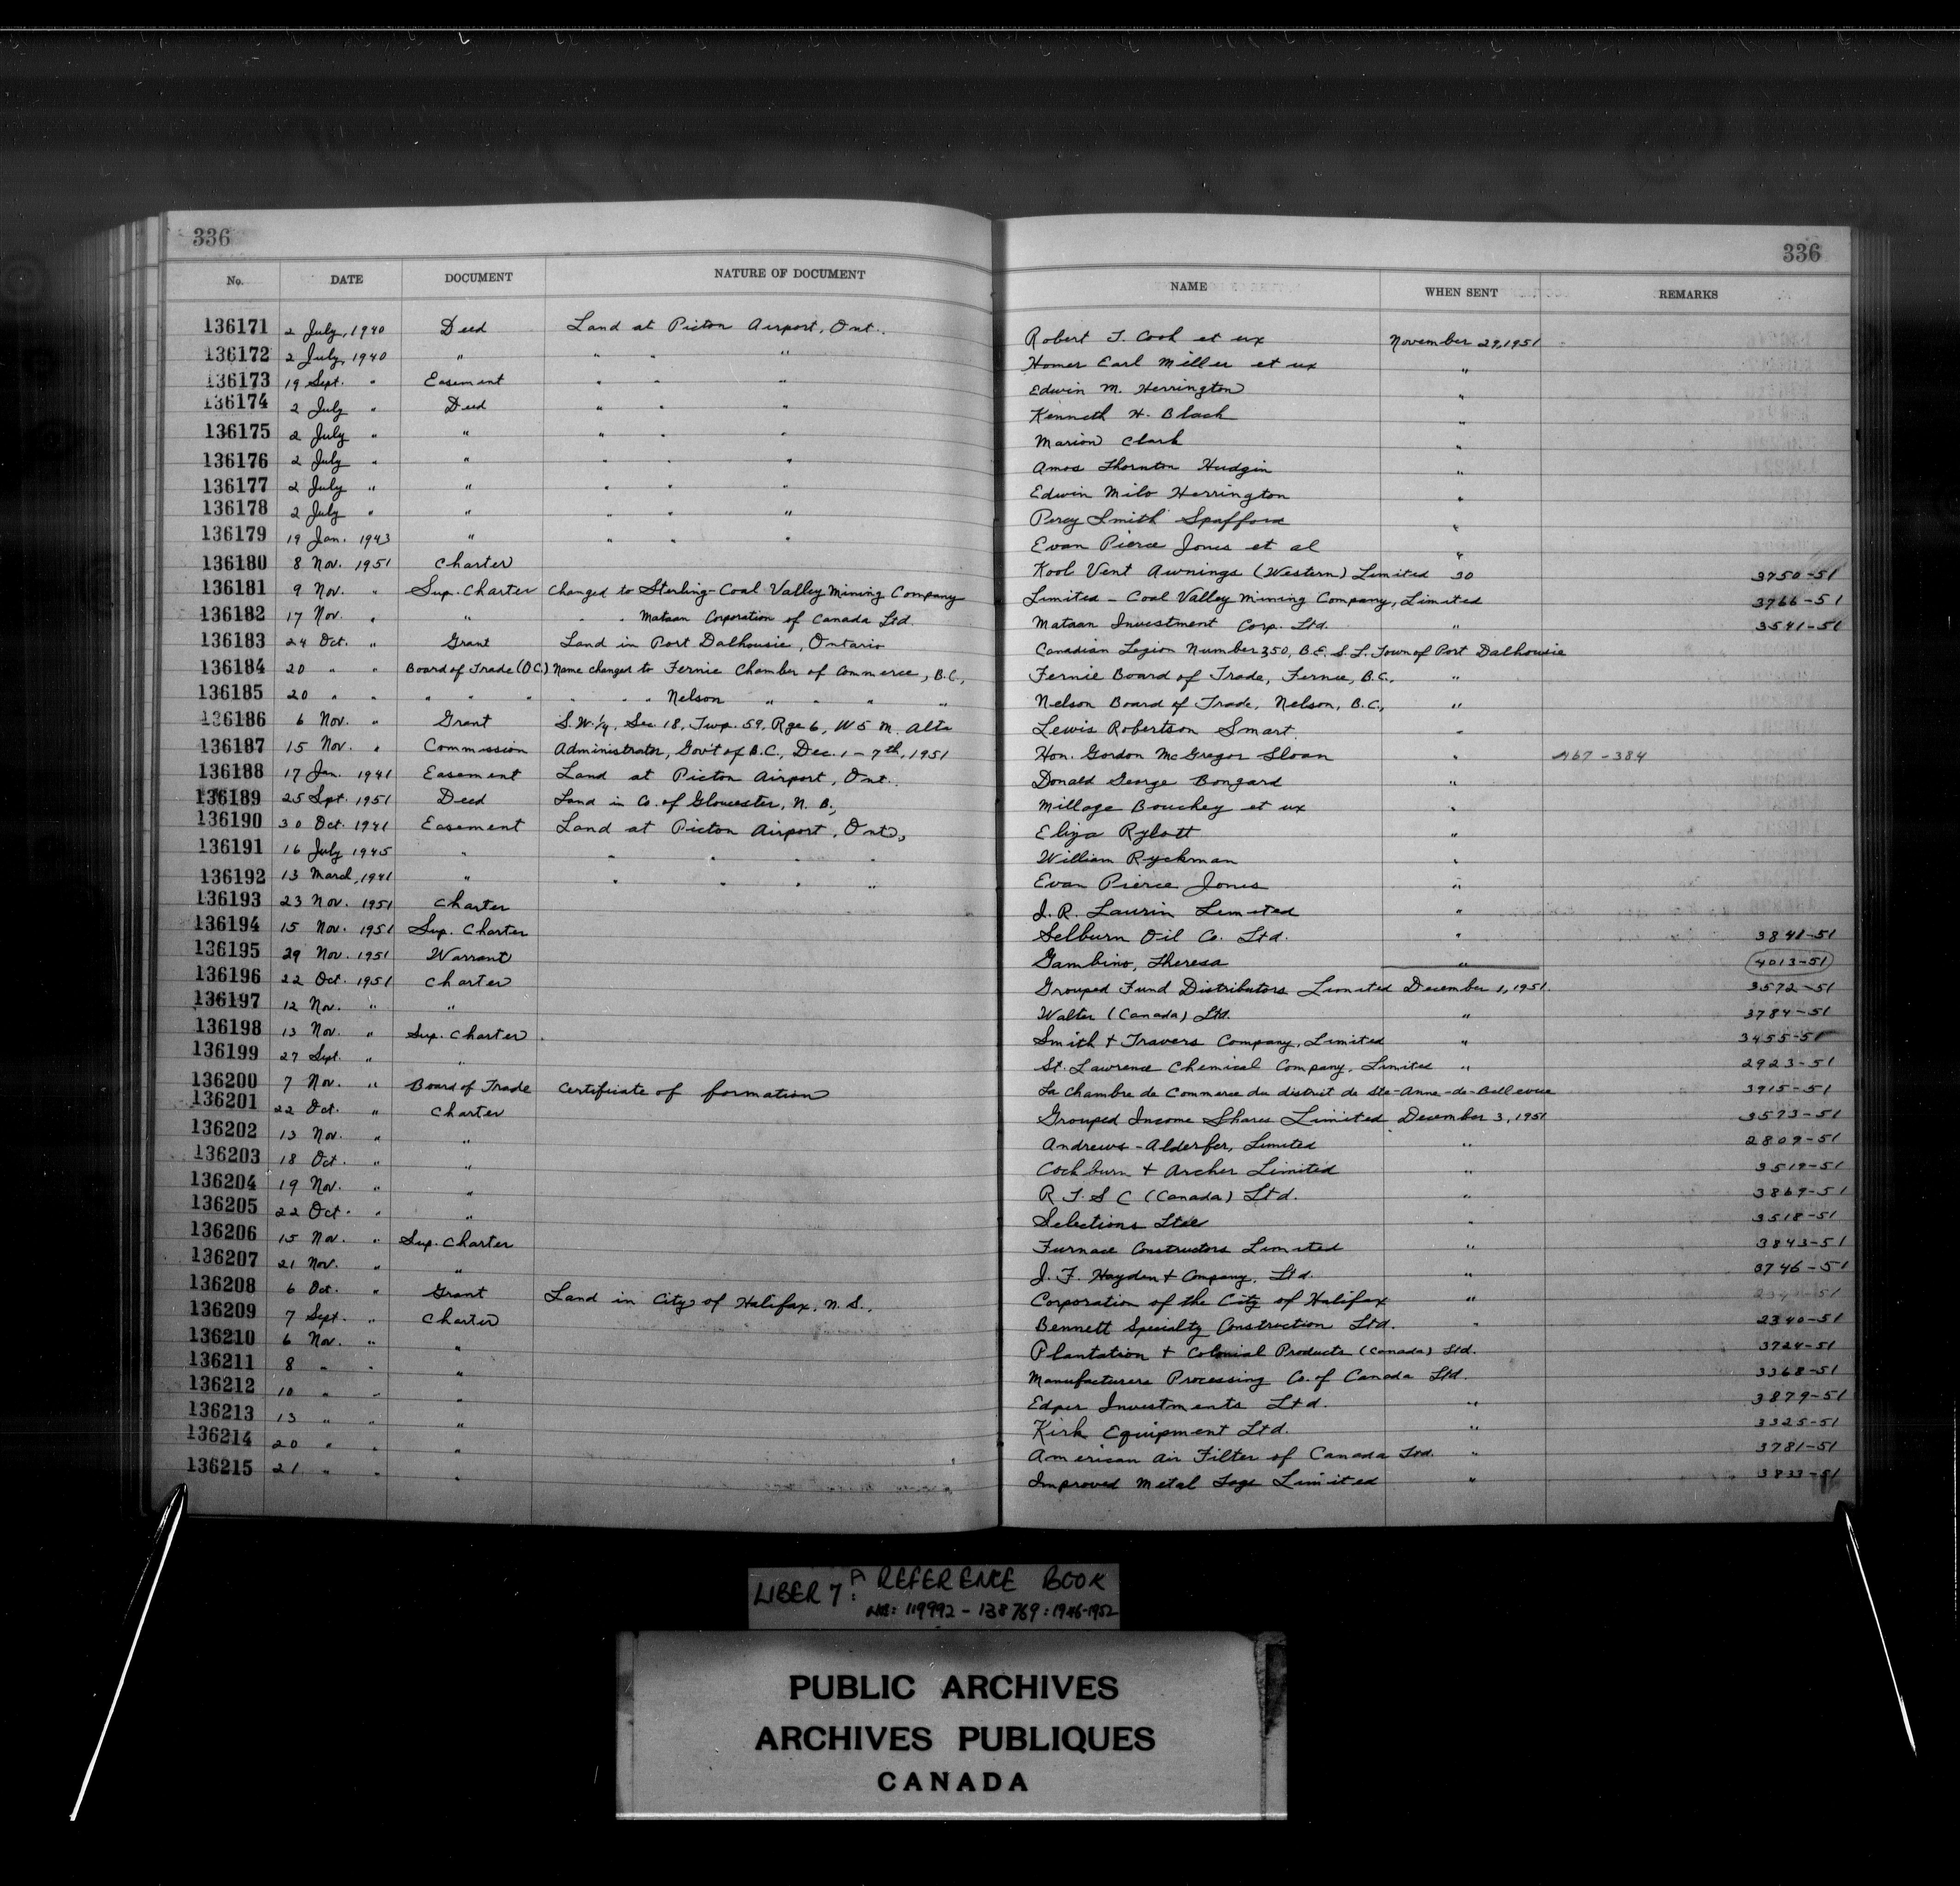 336 336
No. DATE DOCUMENT NATURE OF DOCUMENT NAME WHEN SENT REMARKS
136171 2 July, 1940 Deed Land at Picton Airport, Ont. Robert T. Cook et ux November 29, 1951
136172 2 July, 1940 " " " " Homer Earl Miller et ux "
136173 19 Sept. " Easement " " " Edwin M. Herrington "
136174 2 July " Deed " " " Kenneth H. Black "
136175 2 July " " " " " Marion Clark "
136176 2 July " " " " " Amos Thornton Hudgin "
136177 2 July " " " " " Edwin Milo Herrington "
136178 2 July " " " " " Percy Smith Spafford "
136179 19 Jan. 1943 " " " " Evan Pierce Jones et al "
136180 8 Nov. 1951 Charter Kool Vent Awnings (Western) Limited 30 3750-51
136181 9 Nov. " Sup. Charter Changed to Sterling-Coal Valley Mining Company Limited - Coal Valley Mining Company, Limited 3766-51
136182 17 Nov. " " " " Mataan Corporation of Canada Ltd. Mataan Investment Corp. Ltd. " 3541-51
136183 24 Oct. " Grant Land in Port Dalhousie, Ontario Canadian Legion Number 350, B.E.S.L. Town of Port Dalhousie
136184 20 " " Board of Trade (O.C.) Name changed to Fernie Chamber of Commerce, B.C., Fernie Board of Trade, Fernie, B.C., "
136185 20 " " " " " " " " Nelson " " " " Nelson Board of Trade, Nelson, B.C., "
136186 6 Nov. " Grant S.W.¼, Sec. 18, Twp. 59, Rge 6, W 5 M. Alta Lewis Robertson Smart. "
136187 15 Nov. " Commission Administrator, Gov't of B.C., Dec. 1 - 7th, 1951 Hon. Gordon McGregor Sloan " 467-384
136188 17 Jan. 1941 Easement Land at Picton Airport, Ont. Donald George Bongard "
136189 25 Sept. 1951 Deed Land in Co. of Gloucester, N.B., Millage Bouchey et ux "
136190 30 Oct. 1941 Easement Land at Picton Airport, Ont., Eliza Rylott "
136191 16 July 1945 " " " " " William Ryckman "
136192 13 March, 1941 " " " " " Evan Pierce Jones "
136193 23 Nov. 1951 Charter J. R. Laurin Limited "
136194 15 Nov. 1951 Sup. Charter Selburn Oil Co. Ltd. " 3841-51
136195 29 Nov. 1951 Warrant Gambino, Theresa " 4013-51
136196 22 Oct. 1951 Charter Grouped Fund Distributors Limited December 1, 1951. 3572-51
136197 12 Nov. " " Walter (Canada) Ltd. " 3784-51
136198 13 Nov. " Sup. Charter Smith & Travers Company, Limited " 3455-51
136199 27 Sept. " " St. Lawrence Chemical Company, Limited " 2923-51
136200 7 Nov. " Board of Trade Certificate of formation La Chambre de Commerce du district de Ste-Anne-de-Bellevue 3915-51
136201 22 Oct. " Charter Grouped Income Shares Limited December 3, 1951 3573-51
136202 13 Nov. " " Andrews-Alderfer, Limited " 2809-51
136203 18 Oct. " " Cockburn & Archer Limited " 3519-51
136204 19 Nov. " " R T S C (Canada) Ltd. " 3869-51
136205 22 Oct. " " Selections Ltee " 3518-51
136206 15 Nov. " Sup. Charter Furnace Constructors Limited " 3843-51
136207 21 Nov. " " J. F. Hayden & Company, Ltd. " 3746-51
136208 6 Oct. " Grant Land in City of Halifax, N.S., Corporation of the City of Halifax "
136209 7 Sept. " Charter Bennett Specialty Construction Ltd. " 2340-51
136210 6 Nov. " " Plantation & Colonial Products (Canada) Ltd. 3724-51
136211 8 " " " Manufacturers Processing Co. of Canada Ltd. 3368-51
136212 10 " " " Edper Investments Ltd. " 3879-51
136213 13 " " " Kirk Equipment Ltd. " 3325-51
136214 20 " " " American Air Filter of Canada Ltd. " 3781-51
136215 21 " " " Improved Metal Tags Limited " 3833-51
LIBER 7: A REFERENCE BOOK
NOS: 119992 - 138769: 1946-1952
PUBLIC ARCHIVES
ARCHIVES PUBLIQUES
CANADA